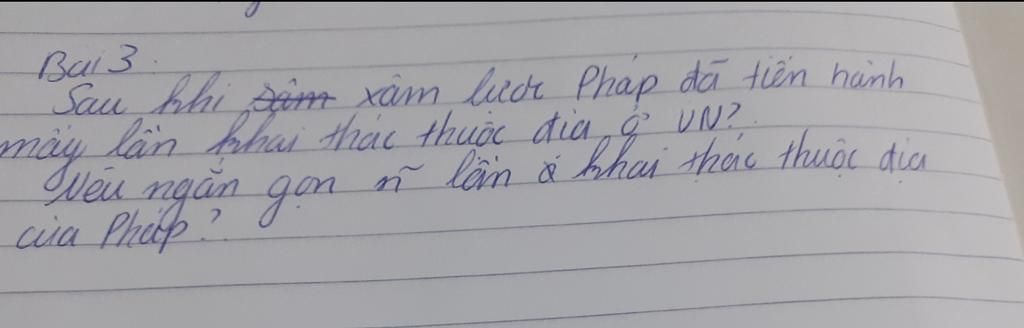 Bài 3.
Sau khi xâm lược Pháp đã tiến hành
mấy lần khai thác thuộc địa ở VN?
Nêu ngắn gọn n~ lần khai thác thuộc địa
của Pháp?